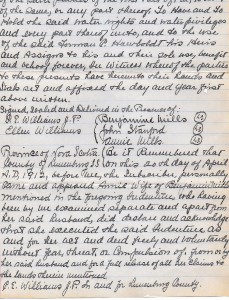 the Same, or any part thereof To Have and To
Hold the said Water rights and water privileges
and every part thereof unto, and to the use
of the said Norman P. Hawboldt His Heirs
and Assigns to his and their sole use, benefit
and behoof forever, In Witness Whereof the parties
to these presents have hereunto their hands and
Seals set and affixed the day and year first
above written.
Signed, Sealed and Delivered in the Presence of
P. S. Williams J.P. Benjamine Mills
Ellen Williams John Stanford
Annie Mills
Province of Nova Scotia Be it Remembered that
County of Lunenburg SS on this 20th day of April
A.D. 1912, before me, the Subscriber, personally
came and appeared Annie Wife of Benjamin Mills
mentioned in the foregoing Indenture, who having
been by me examined separate and apart from
her said husband, did declare and acknowledge
that she executed the said Indenture as
and for her act and deed freely and voluntarily
without fear, threat, or Compulsion of, from or by
her said husband and for full release of all her claims to
the lands therein mentioned
P. S. Williams J.P. In and for Lunenburg County.